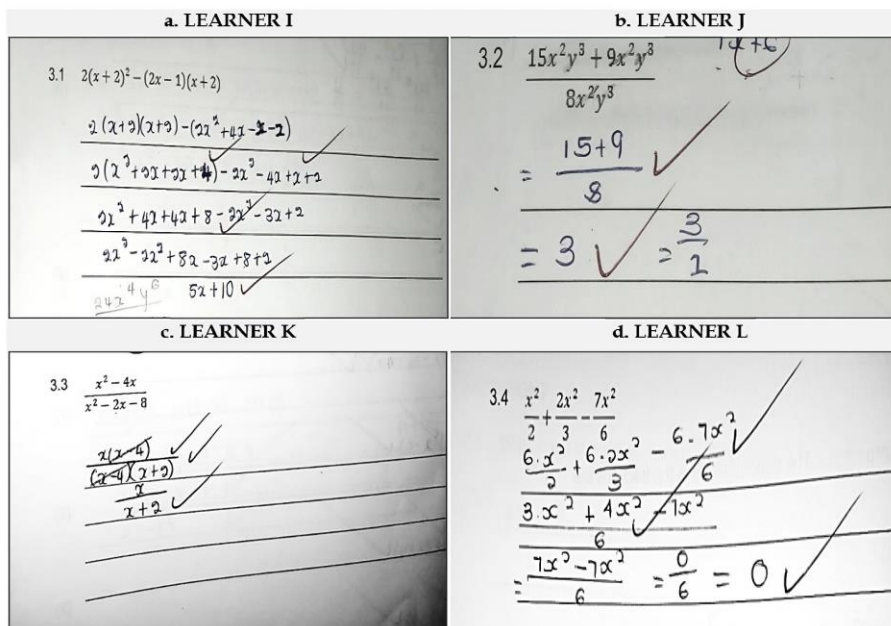 a. LEARNER I
3.1 2(x+2)² − (2x−1)(x+2)
2(x+2)(x+2) − (2x²+4x−x−2)
2(x²+2x+2x+4) − 2x² − 4x + x + 2
2x² + 4x + 4x + 8 − 2x² − 3x + 2
2x² − 2x² + 8x − 3x + 8 + 2
5x + 10
24x⁴y⁶
b. LEARNER J
3.2 (15x²y³ + 9x²y³)/(8x²y³)
= (15+9)/8
= 3 = 3/1
c. LEARNER K
3.3 (x² − 4x)/(x² − 2x − 8)
x(x−4)/((x−4)(x+2))
x/(x+2)
d. LEARNER L
3.4 x²/2 + 2x²/3 − 7x²/6
6.x²/2 + 6.2x²/3 − 6.7x²/6
(3.x² + 4x² − 7x²)/6
= (7x² − 7x²)/6 = 0/6 = 0